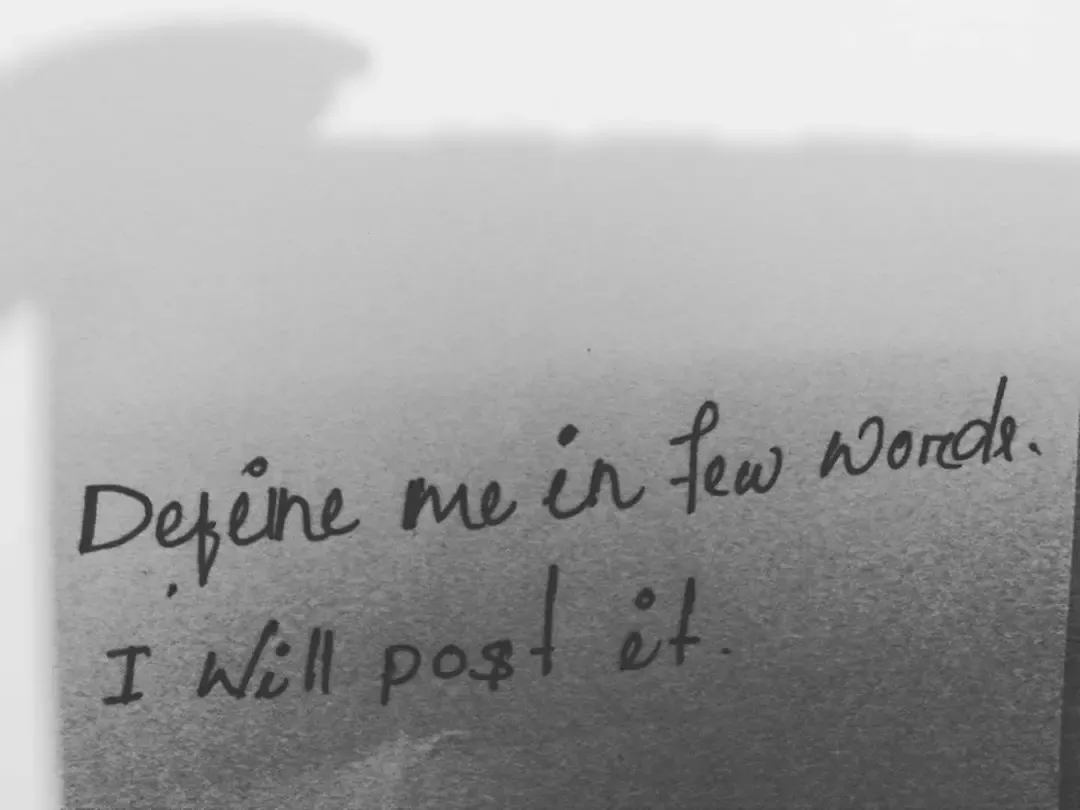 Define me in few words.
I will post it.